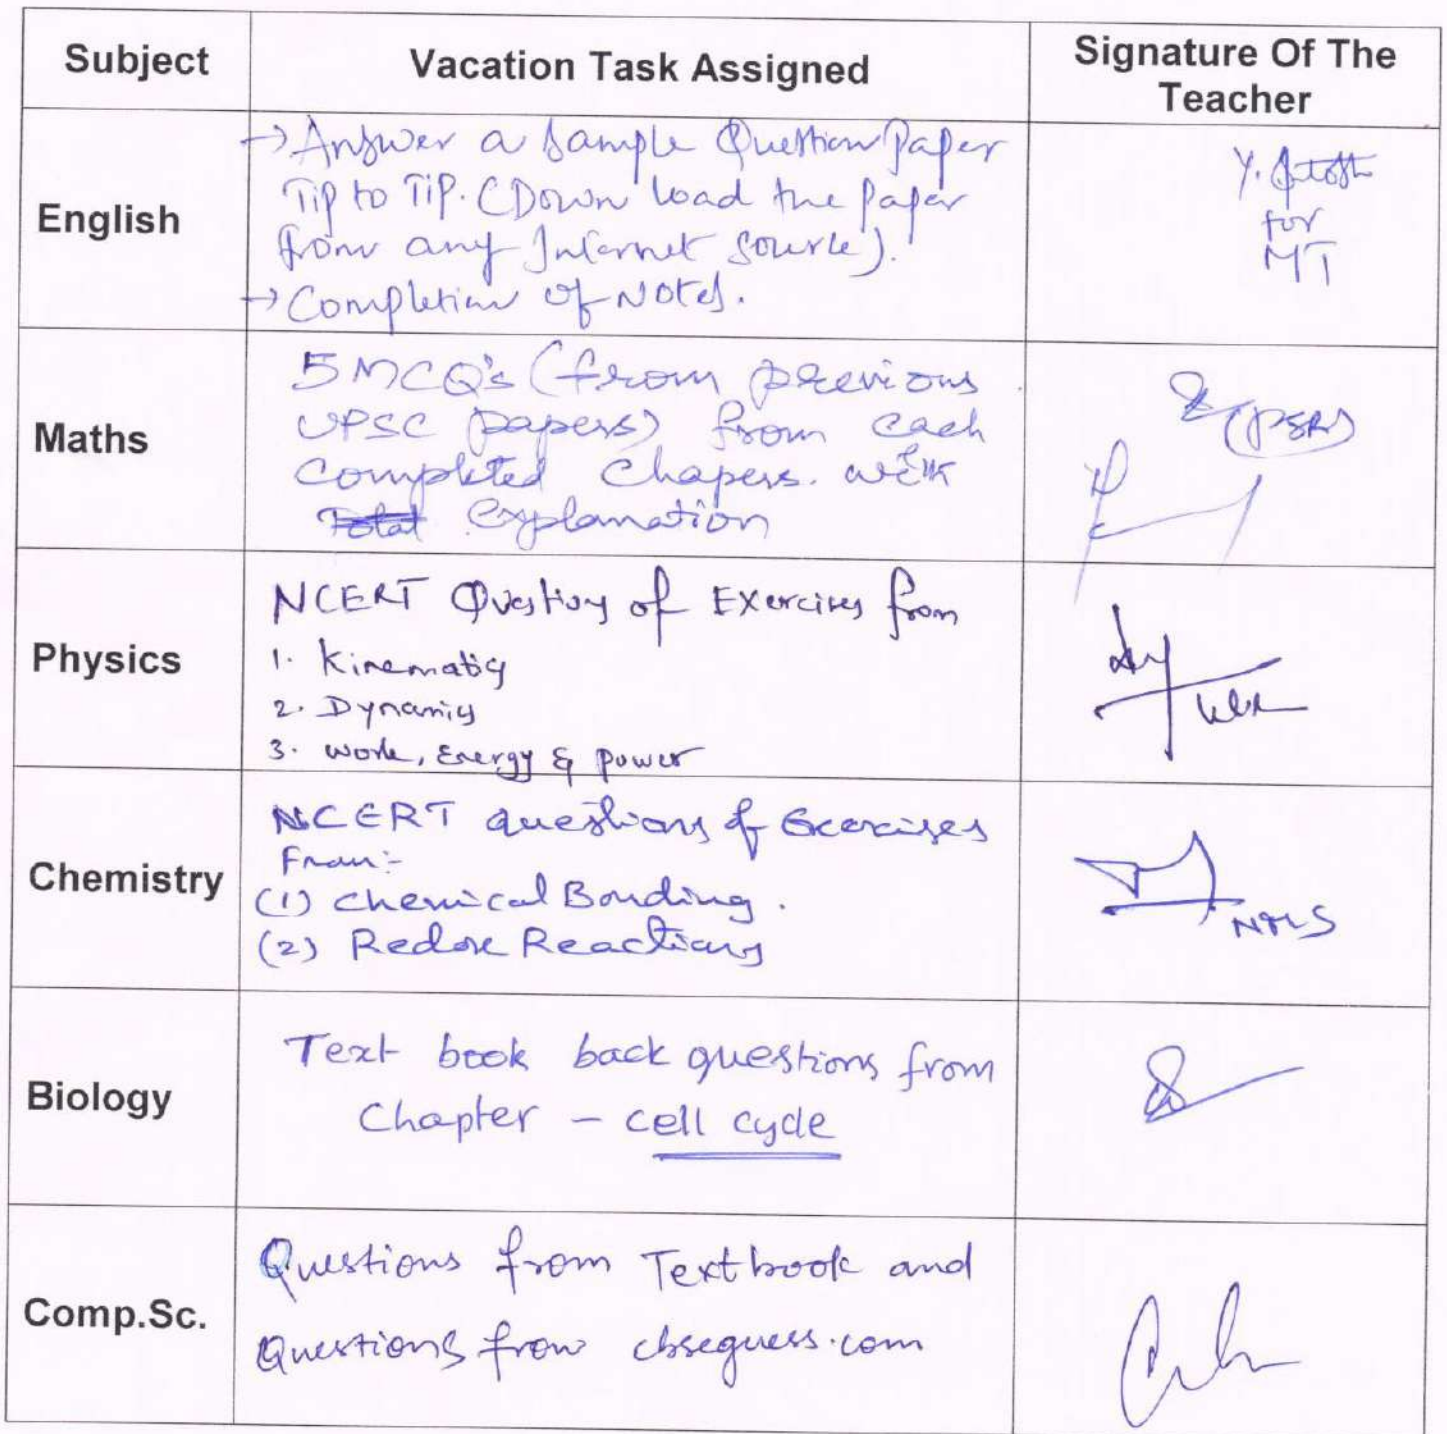 Subject
Vacation Task Assigned
Signature Of The
Teacher
English
→ Answer a Sample Question Paper
Tip to Tip. (Down load the paper
from any Internet source).
→ Completion of Notes.
Y.
for
MT
Maths
5 MCQ's (from previous
UPSC papers) from each
completed Chapers. with
Total Explanation
(PSR)
Physics
NCERT Questions of Exercises from
1. Kinematics
2. Dynamics
3. Work, Energy & Power
Chemistry
NCERT questions of Exercises
From:-
(1) Chemical Bonding.
(2) Redox Reactions
NMS
Biology
Text book back questions from
Chapter - cell cycle
Comp.Sc.
Questions from Textbook and
Questions from cbseguess.com